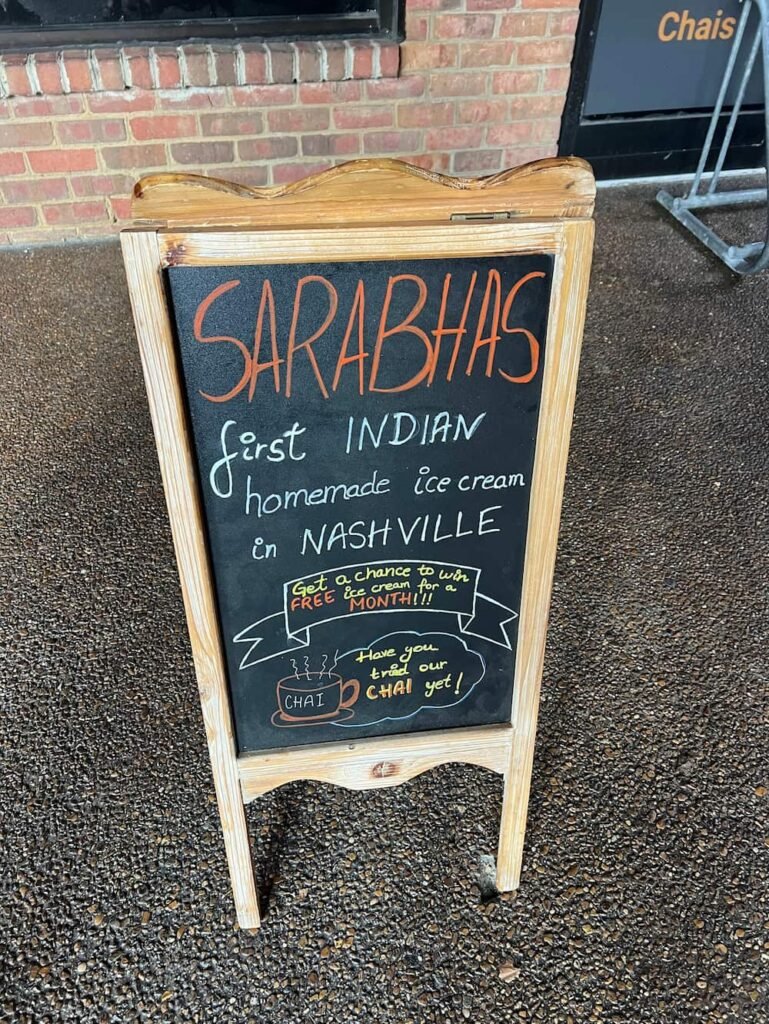 Chais
SARABHAS
first INDIAN
homemade ice cream
in NASHVILLE
Get a chance to win
FREE ice cream for a
MONTH!!!
Have you
tried our
CHAI yet!
CHAI